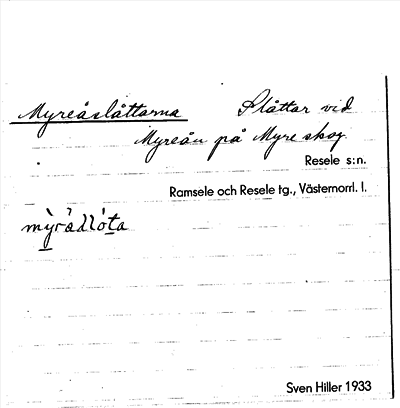 Myreåslåttarna Slåttar vid
Myreån på Myre skog
Resele s:n.
Ramsele och Resele tg., Västernorrl. l.
mỳrådlóta
Sven Hiller 1933